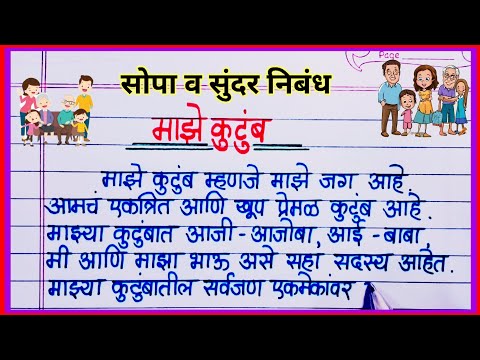 Page
सोपा व सुंदर निबंध
माझे कुटुंब
माझे कुटुंब म्हणजे माझे जग आहे.
आमचं एकत्रित आणि खूप प्रेमळ कुटुंब आहे.
माझ्या कुटुंबात आजी-आजोबा, आई-बाबा,
मी आणि माझा भाऊ असे सहा सदस्य आहेत.
माझ्या कुटुंबातील सर्वजण एकमेकांवर